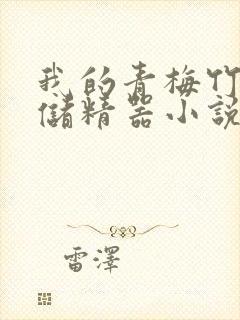 我的青梅竹
儲精器小說
雷澤